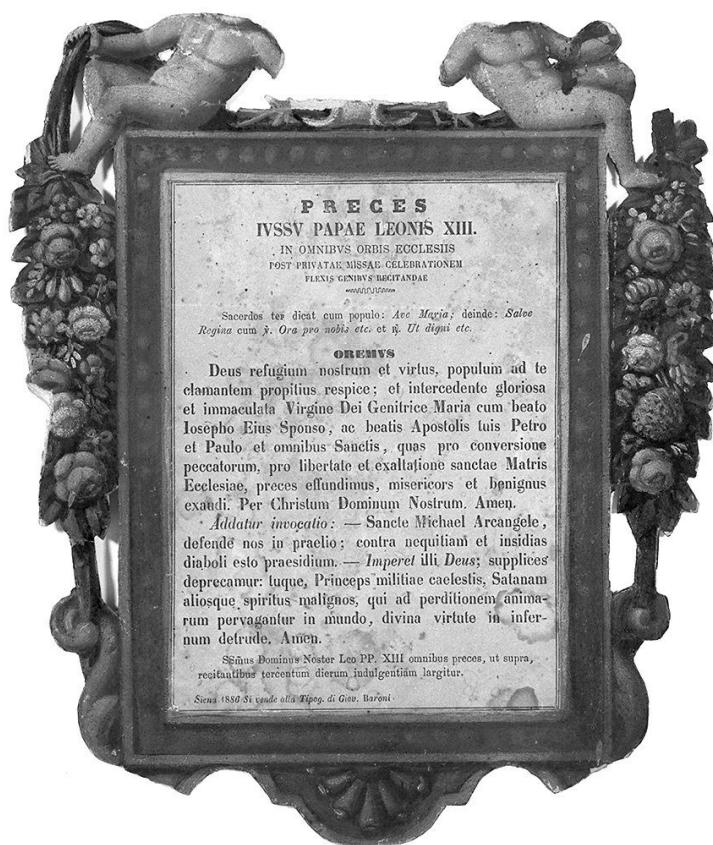 PRECES
IVSSV PAPAE LEONIS XIII.
IN OMNIBVS ORBIS ECCLESIIS
POST PRIVATAE MISSAE CELEBRATIONEM
FLEXIS GENIBVS RECITANDAE
Sacerdos ter dicat cum populo: Ave Maria; deinde: Salve
Regina cum ℣. Ora pro nobis etc. et ℟. Ut digni etc.
OREMVS
Deus refugium nostrum et virtus, populum ad te
clamantem propitius respice; et intercedente gloriosa
et immaculata Virgine Dei Genitrice Maria cum beato
Iosepho Eius Sponso, ac beatis Apostolis tuis Petro
et Paulo et omnibus Sanctis, quas pro conversione
peccatorum, pro libertate et exaltatione sanctae Matris
Ecclesiae, preces effundimus, misericors et benignus
exaudi. Per Christum Dominum Nostrum. Amen.
Addatur invocatio: — Sancte Michael Arcangele,
defende nos in praelio; contra nequitiam et insidias
diaboli esto praesidium. — Imperet illi Deus; supplices
deprecamur: tuque, Princeps militiae caelestis, Satanam
aliosque spiritus malignos, qui ad perditionem anima-
rum pervagantur in mundo, divina virtute in infer-
num detrude. Amen.
SSm̃us Dominus Noster Leo PP. XIII omnibus preces, ut supra,
recitantibus tercentum dierum indulgentiam largitur.
Siena 1886 Si vende alla Tipog. di Giov. Baroni